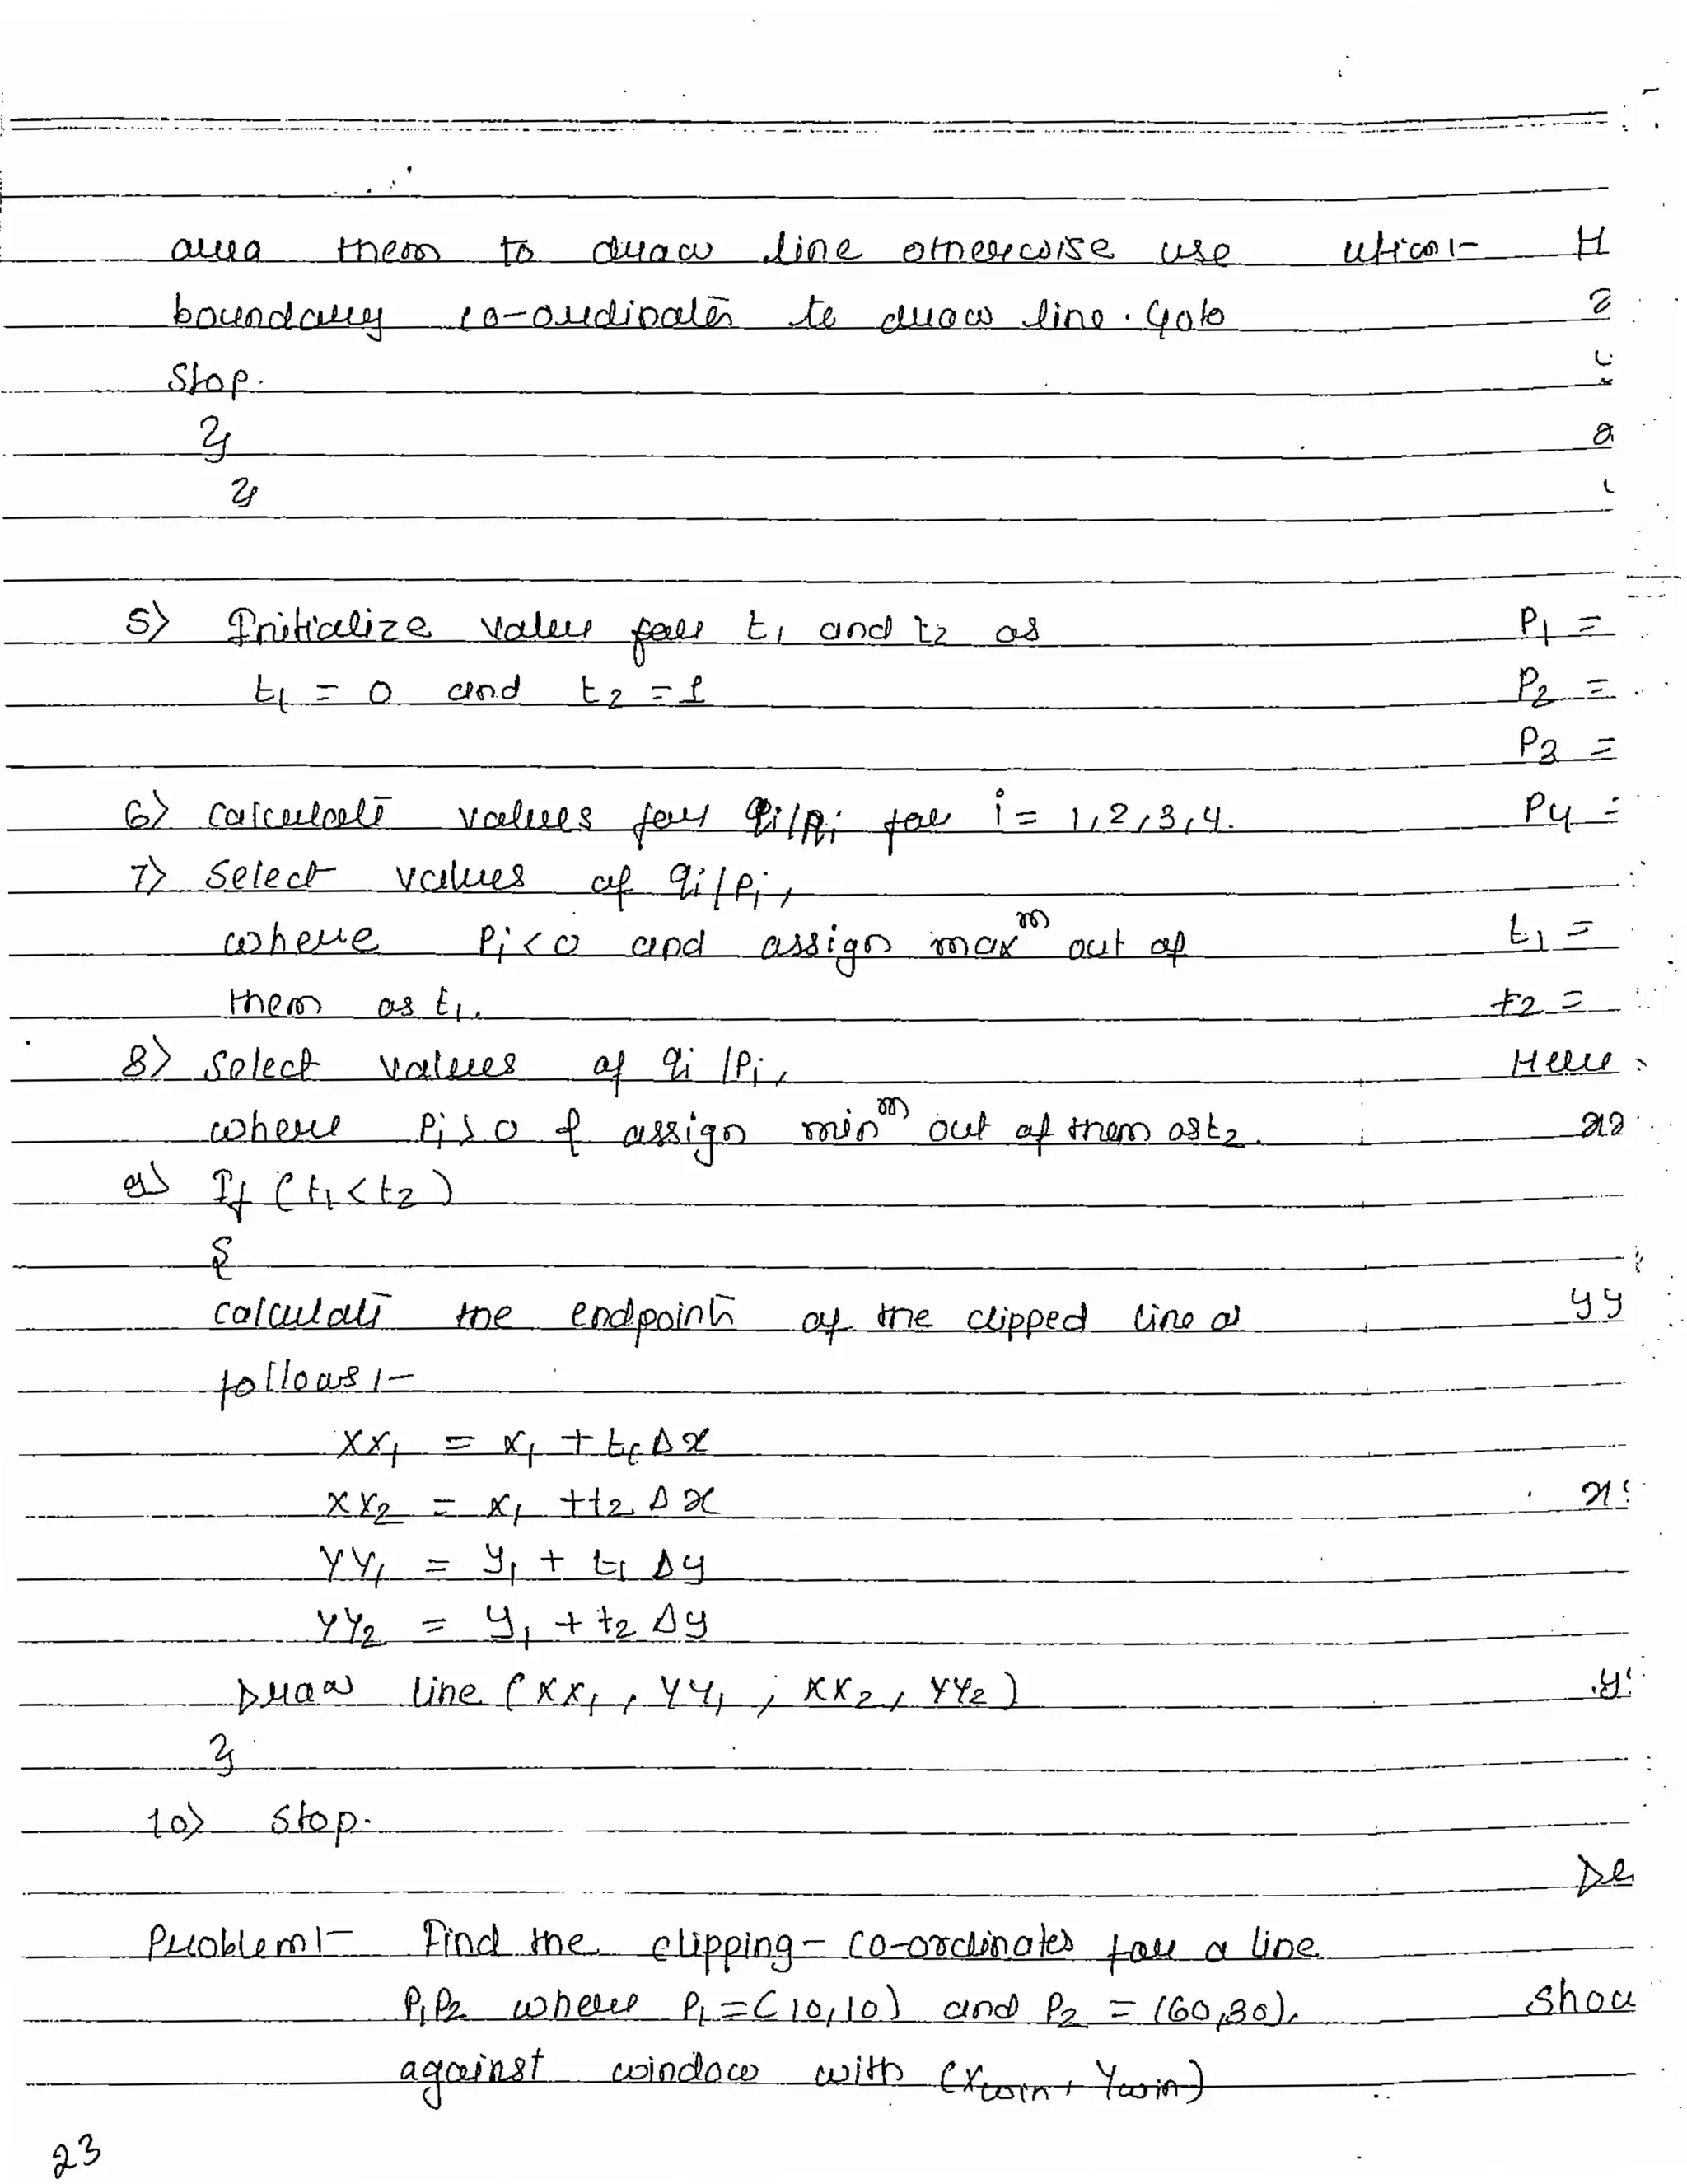 area them to draw line otherwise use
boundary co-ordinates to draw line. Goto
Stop.
}
}
5) Initialize value for t1 and t2 as
t1 = 0 and t2 = 1
6) Calculate values for qi/pi for i = 1,2,3,4.
7) Select values of qi/pi,
where Pi < 0 and assign max^m out of
them as t1.
8) Select values of qi/Pi,
where Pi > 0 & assign min^m out of them as t2.
9) If (t1 < t2)
{
calculate the endpoints of the clipped line as
follows :-
XX1 = x1 + t1 Δx
XX2 = x1 + t2 Δx
YY1 = y1 + t1 Δy
YY2 = y1 + t2 Δy
Draw line (XX1, YY1, XX2, YY2)
}
10) Stop.
Problem :- Find the clipping - co-ordinates for a line
P1P2 where P1 = (10,10) and P2 = (60,30),
against window with (Xwin, Ywin)
23
H
P1 =
P2 =
P3 =
P4 =
t1 =
t2 =
Here
yy